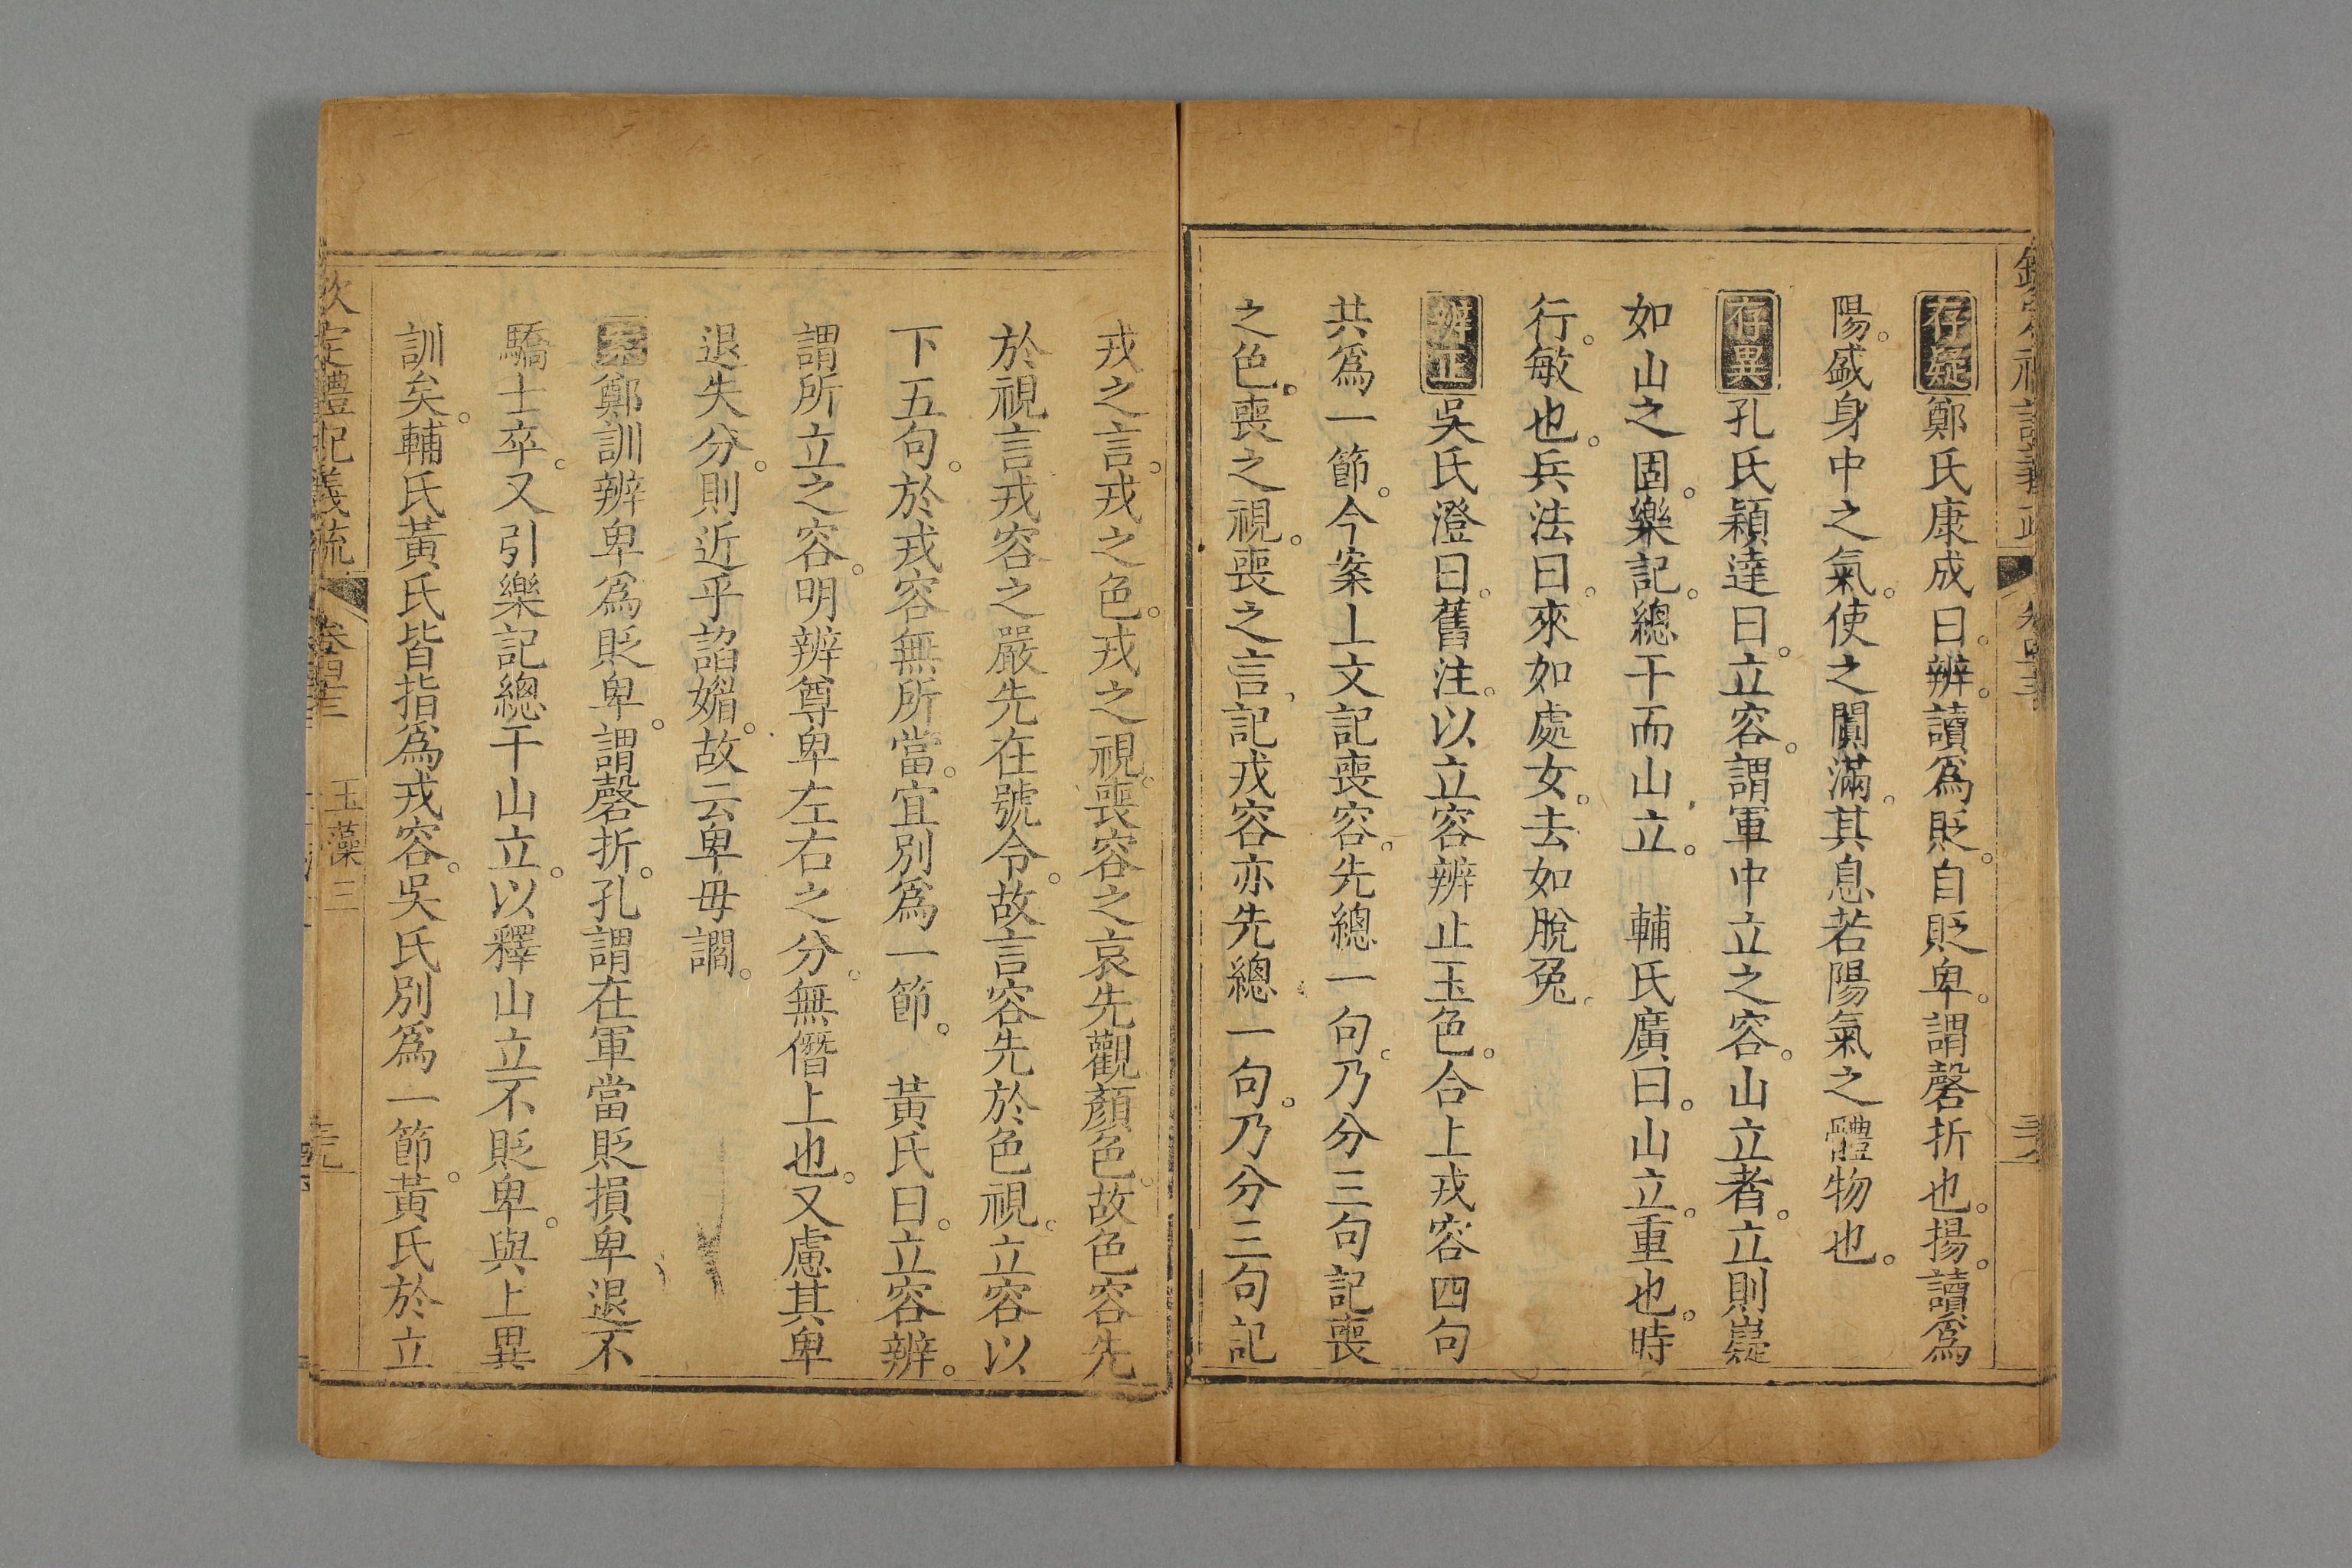 存疑鄭氏康成曰。辨。讀爲貶。自貶卑。謂磬折也。揚。讀爲
陽。盛身中之氣。使之闐滿。其息若陽氣之體物也。
存異孔氏穎達曰。立容。謂軍中立之容。山立者。立則嶷
如山之固。樂記。總干而山立。　輔氏廣曰。山立。重也。時
行。敏也。兵法曰。來如處女。去如脫兔。
辨正吳氏澄曰。舊注。以立容辨止玉色。合上戎容四句
共爲一節。今案上文記喪容。先總一句。乃分三句記喪
之色。喪之視。喪之言。記戎容亦先總一句。乃分三句記
戎之言。戎之色。戎之視。喪容之哀先觀顏色。故色容先
於視言戎容之嚴先在號令。故言容先於色視。立容以
下五句。於戎容無所當。宜別爲一節。　黃氏曰。立容辨。
謂所立之容。明辨尊卑左右之分。無僭上也。又慮其卑
退失分。則近乎諂媚。故云卑毋讇。
案鄭訓辨卑爲貶卑。謂磬折。孔謂在軍當貶損卑退不
驕士卒。又引樂記總干山立。以釋山立不貶卑。與上異
訓矣。輔氏黃氏皆指爲戎容。吳氏別爲一節。黃氏於立
欽定禮記義疏 卷四十三 玉藻三